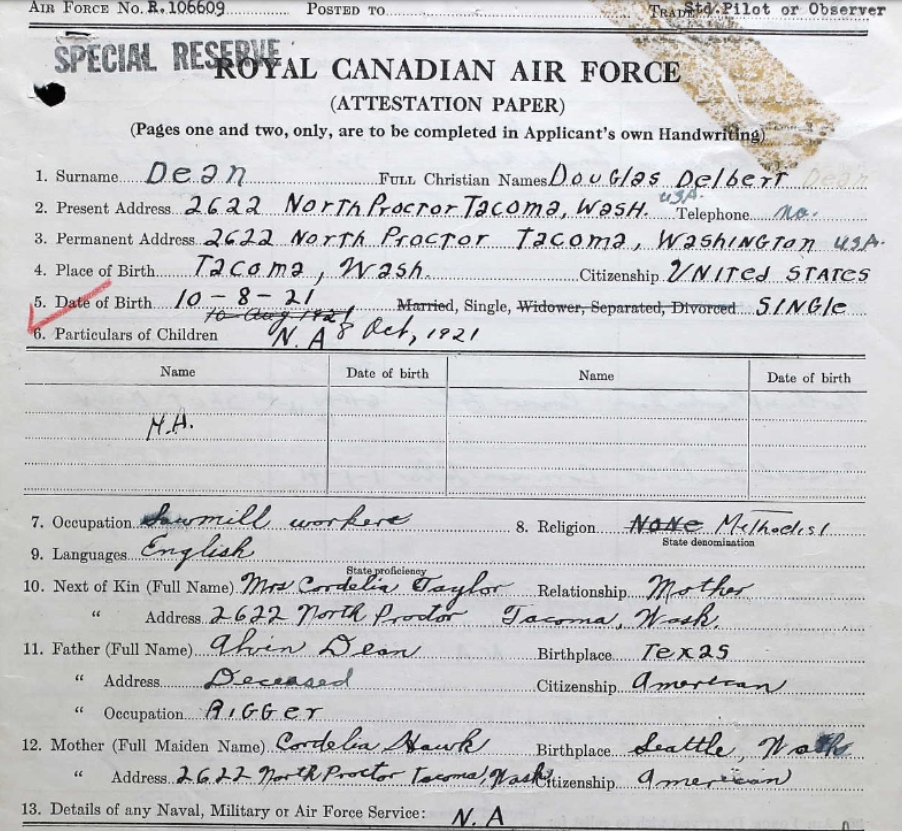 AIR FORCE No. R.106609 POSTED TO TRADE Std. Pilot or Observer
SPECIAL RESERVE
ROYAL CANADIAN AIR FORCE
(ATTESTATION PAPER)
(Pages one and two, only, are to be completed in Applicant's own Handwriting)
1. Surname Dean FULL Christian Names Douglas Delbert Dean
2. Present Address 2622 North Proctor Tacoma, Wash. USA. Telephone no.
3. Permanent Address 2622 North Proctor Tacoma, Washington USA.
4. Place of Birth Tacoma, Wash. Citizenship United States
5. Date of Birth 10-8-21 Married, Single, Widower, Separated, Divorced Single
10 Aug 1921
6. Particulars of Children N.A 8 Oct, 1921
Name Date of birth Name Date of birth
N.A.
7. Occupation Sawmill workers 8. Religion None Methodist
State denomination
9. Languages English
State proficiency
10. Next of Kin (Full Name) Mrs Cordelia Taylor Relationship Mother
" Address 2622 North Proctor Tacoma, Wash.
11. Father (Full Name) Alvin Dean Birthplace Texas
" Address Deceased Citizenship American
" Occupation Rigger
12. Mother (Full Maiden Name) Cordelia Hawk Birthplace Seattle, Wash
" Address 2622 North Proctor Tacoma, Wash Citizenship American
13. Details of any Naval, Military or Air Force Service: N.A